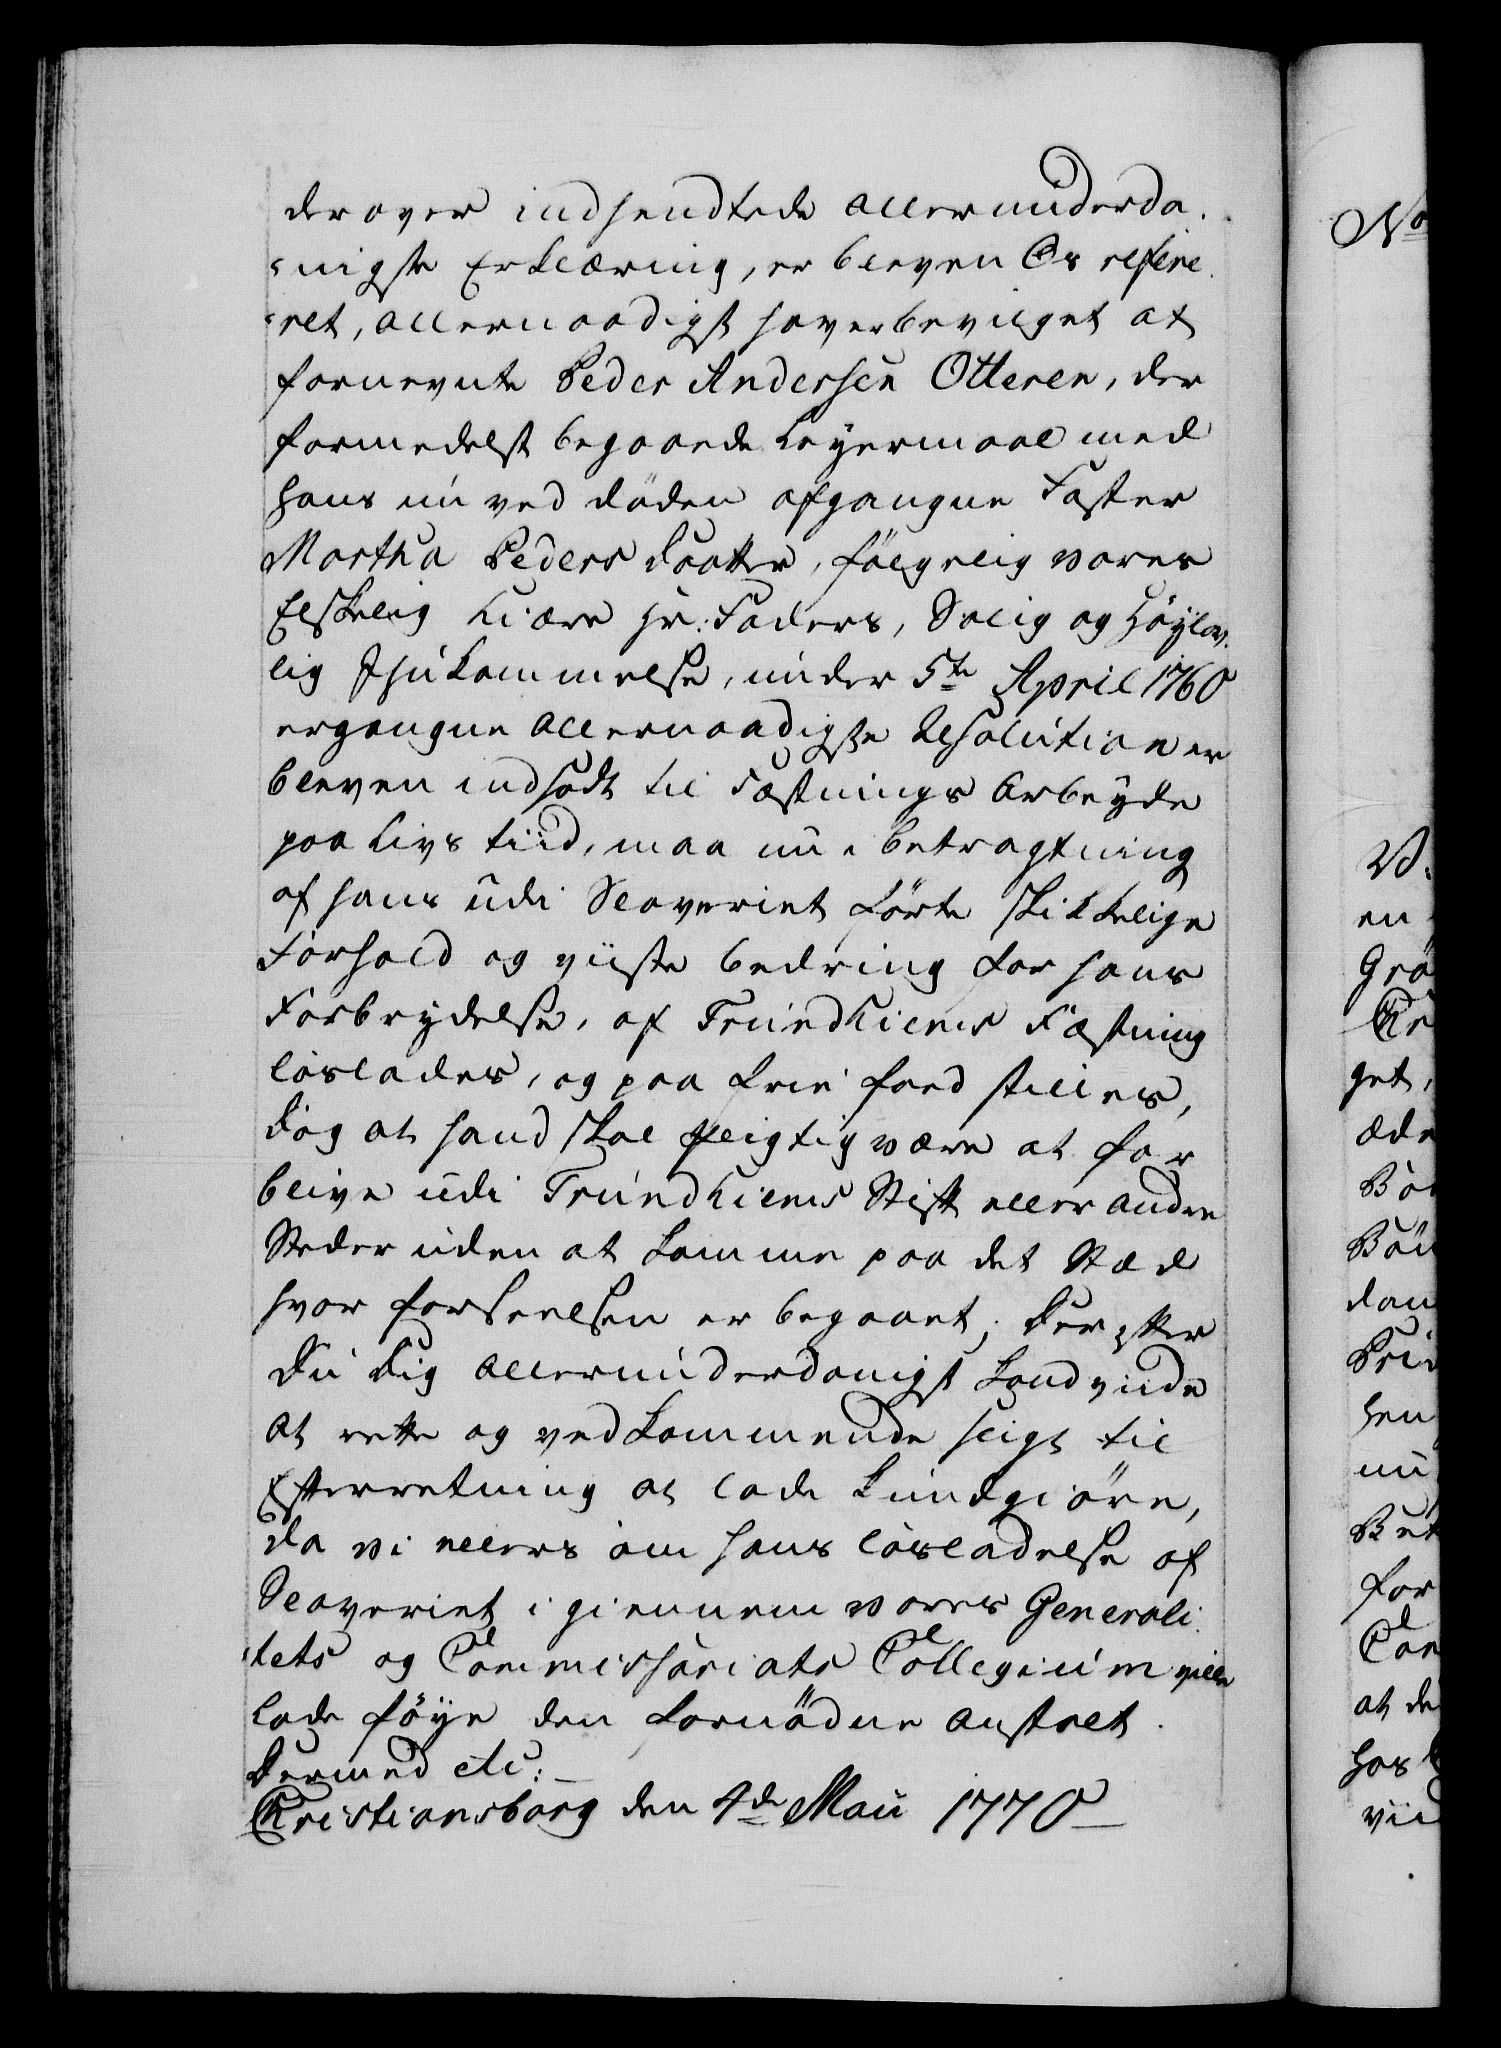 derover indsendtede allerunderda-
nigste Erklæring, er bleven Os refere-
ret, allernaadigst haver bevilget at
fornevnte Peder Andersen Otteren, der
formedelst begaaede Leyermaal med
hans nu ved döden afgangne Faster
Martha Peders daatter, fölgelig vores
Elskelig Kiære Hr: Faders, Salig og Höylov-
lig Ihukommelse, under 5te April 1760
ergangne Allernaadigste Resolution er
bleven indsadt til Fæstnings Arbeyde
paa Livs tiid, maa nu i betragtning
af hans udi Slaveriet förte skikkelige
Forhold og viiste bedring for hans
Forbrydelse, af Trundhiems Fæstning
löslades, og paa frie foed stilles,
dog at hand skal pligtig være at for
blive udi Trundhiems Stift eller andre
Steder uden at komme paa det Stæd
hvor forseelsen er begaaet; Derefter
Du Dig allerunderdanigst haver
at rette og vedkommende sligt til
Efterretning at lade kundgiöre,
da vi ellers om hans lösladelse af
Slaveriet igiennem vores Generali-
tets og Commissariats Collegium ville
lade föye den fornödne Anstalt.
Dermed etc:
Christiansborg den 4de Maii 1770
No
V.
en
Grö
Kr
get,
æde
dan
hen
nu
Bet
for
Con
at de
hos
vii